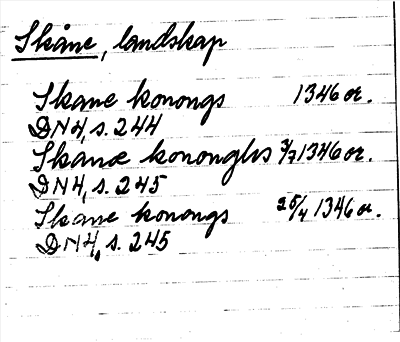 Skåne, landskap
Skane konongs 1346 or.
DN4, s. 244
Skanæ kononghs 3/7 1346 or.
DN4, s. 245
Skane konongs 25/4 1346 or.
DN4, s. 245